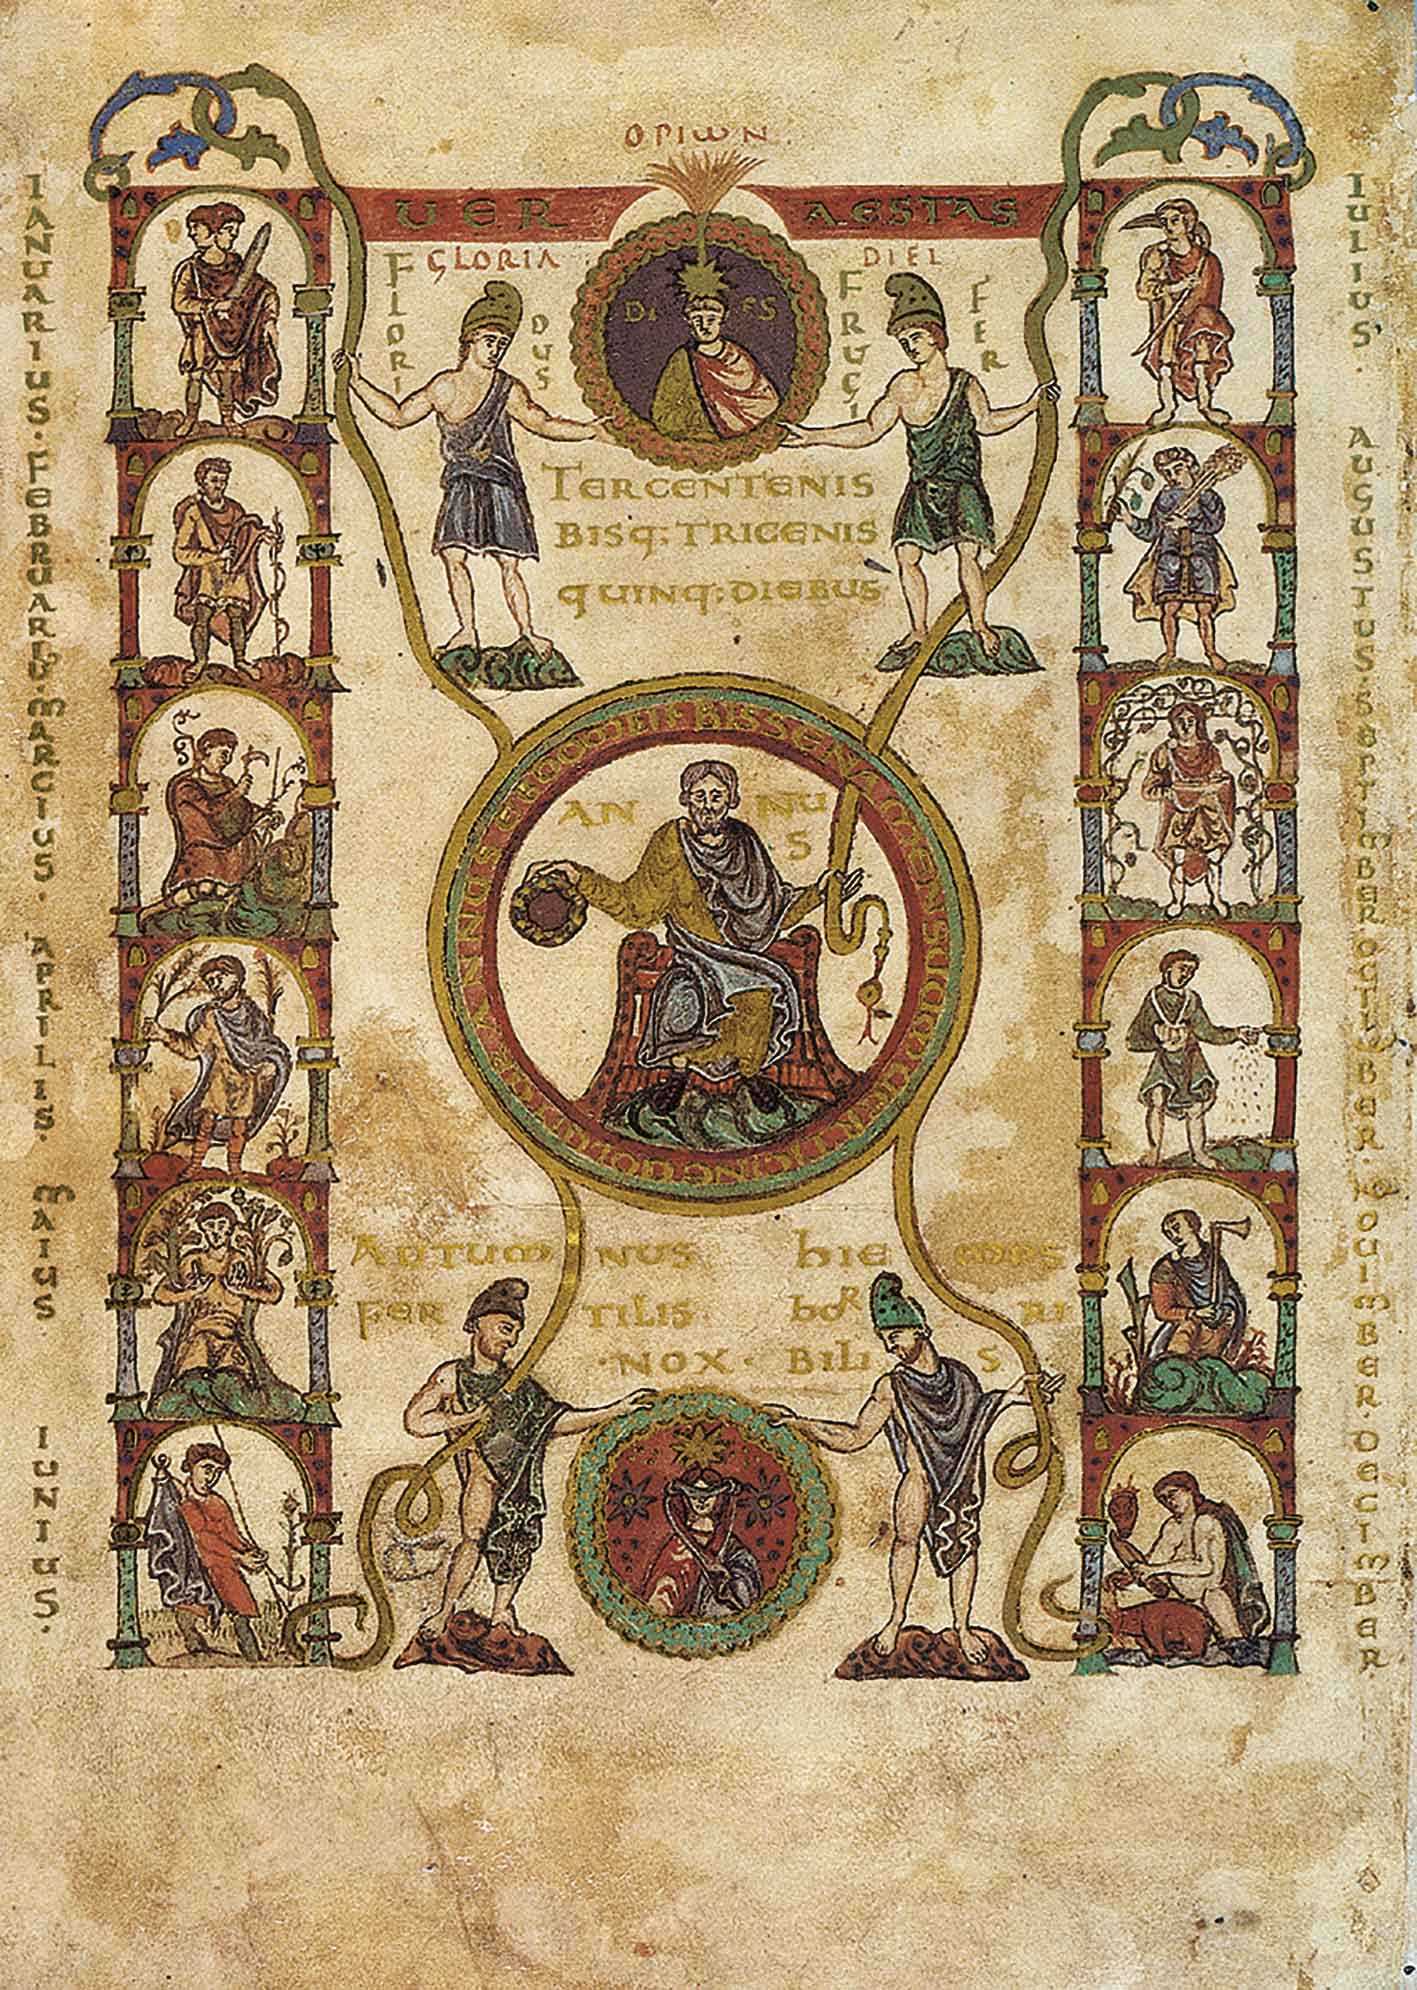 OPIωN
UER AESTAS
GLORIA DIEI
FLORI DUS
FRUGI FER
DI ES
TERCENTENIS
BISq; TRIGENIS
QUINq; DIEBUS
ANNUS
AUTUMNUS hIEMPS
FERTILIS. hORRI
·NOX· BILIS
IANUARIUS. FEBRUARIUS. MARCIUS. APRILIS. MAIUS IUNIUS.
IULIUS. AUGUSTUS. SEPTIMBER OCTIMBER. NOUIMBER. DECIMBER